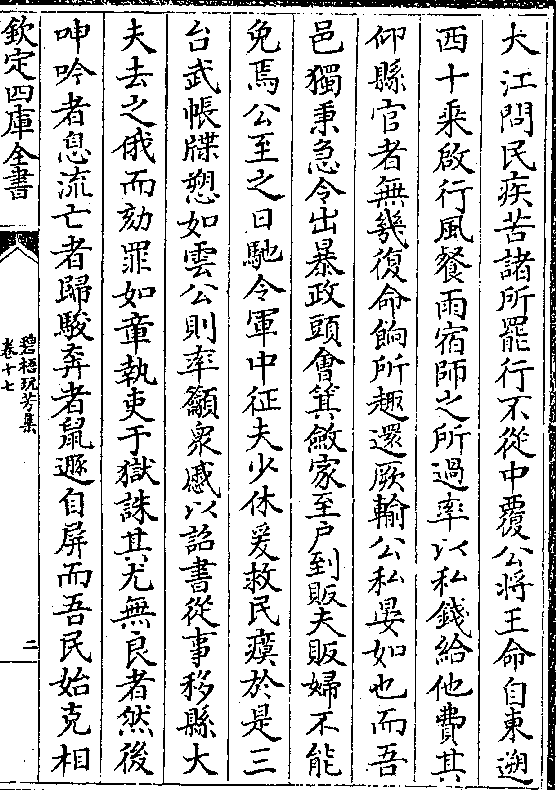 大江問民疾苦諸所罷行不從中覆公將王命自東遡
西十乘啟行風餐雨宿師之所過率以私錢給他費其
仰縣官者無幾復命餉所趣還厥輸公私晏如也而吾
邑獨秉急令出暴政頭會箕斂家至户到販夫販婦不能
免焉公至之日馳令軍中征夫少休爰救民瘼於是三
台武帳牒愬如雲公則率籲衆慼以詔書從事移縣大
夫去之俄而劾罪如章執吏于獄誅其尤無良者然後
呻吟者息流亡者歸駿奔者鼠遯自屏而吾民始克相
欽定四庫全書
碧梧玩芳集
卷十七
二